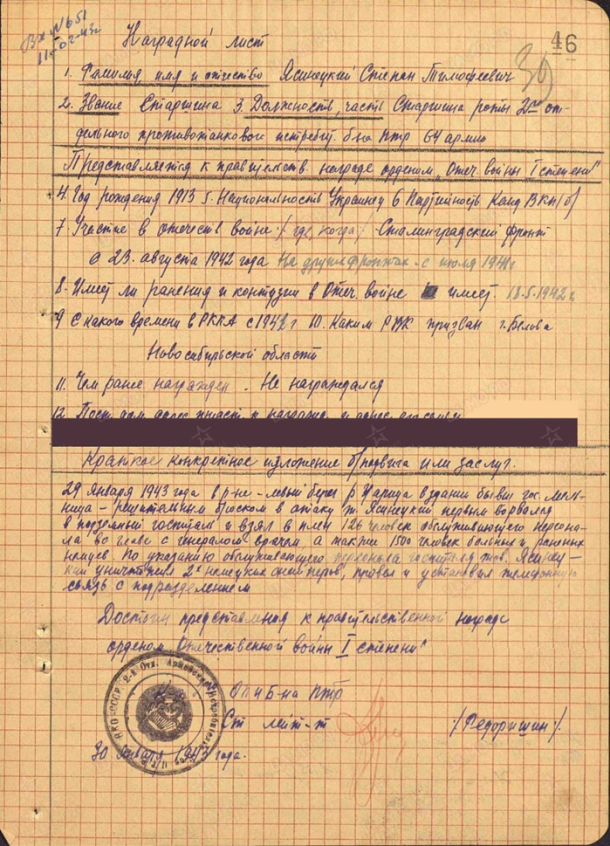 Вх №651
11-02-43г.
46
39
Наградной лист
1. Фамилия, имя и отчество Ясинецкий Степан Тимофеевич
2. Звание Старшина 3 Должность, часть Старшина роты 2го от-
дельного противотанкового истребит б-на ПТР 64 армии
Представляется к правительств награде орденом „Отеч. войны I степени"
4. Год рождения 1913 5. Национальность Украинец 6 Партийность Канд ВКП/б/
7. Участие в отечеств войне /где, когда/ Сталинградский фронт
с 23. августа 1942 года На других фронтах - с июля 1941г
8. Имеет ли ранения и контузии в Отеч. войне имеет 18.5.1942 г
9 С какого времени в РККА с 1942 г 10. Каким РВК призван г. Белово
Новосибирской области
11. Чем ранее награжден. Не награждался
12. Пост дом адрес к награжд и адрес его семьи
Краткое конкретное изложение б/подвига или заслуг.
29 января 1943 года в р-не - левый берег р Царица в здании бывш гос. мель-
ница - решительным броском в атаку т. Ясинецкий первым ворвался
в подземный госпиталь и взял в плен 126 человек обслуживающего персона-
ла во главе с генералом врачом, а также 1500 человек больных и раненых
немцев. По указанию обслуживающего персонала госпиталя тов. Ясинец-
кий уничтожил 2х немецких снайперов, провел и установил телефонную
связь с подразделением
Достоин представления к правительственной награде
орденом „Отечественной войны I степени"
О П И Б-на ПТР
Ст лейт-т /Федоришин/
30 января 1943 года.